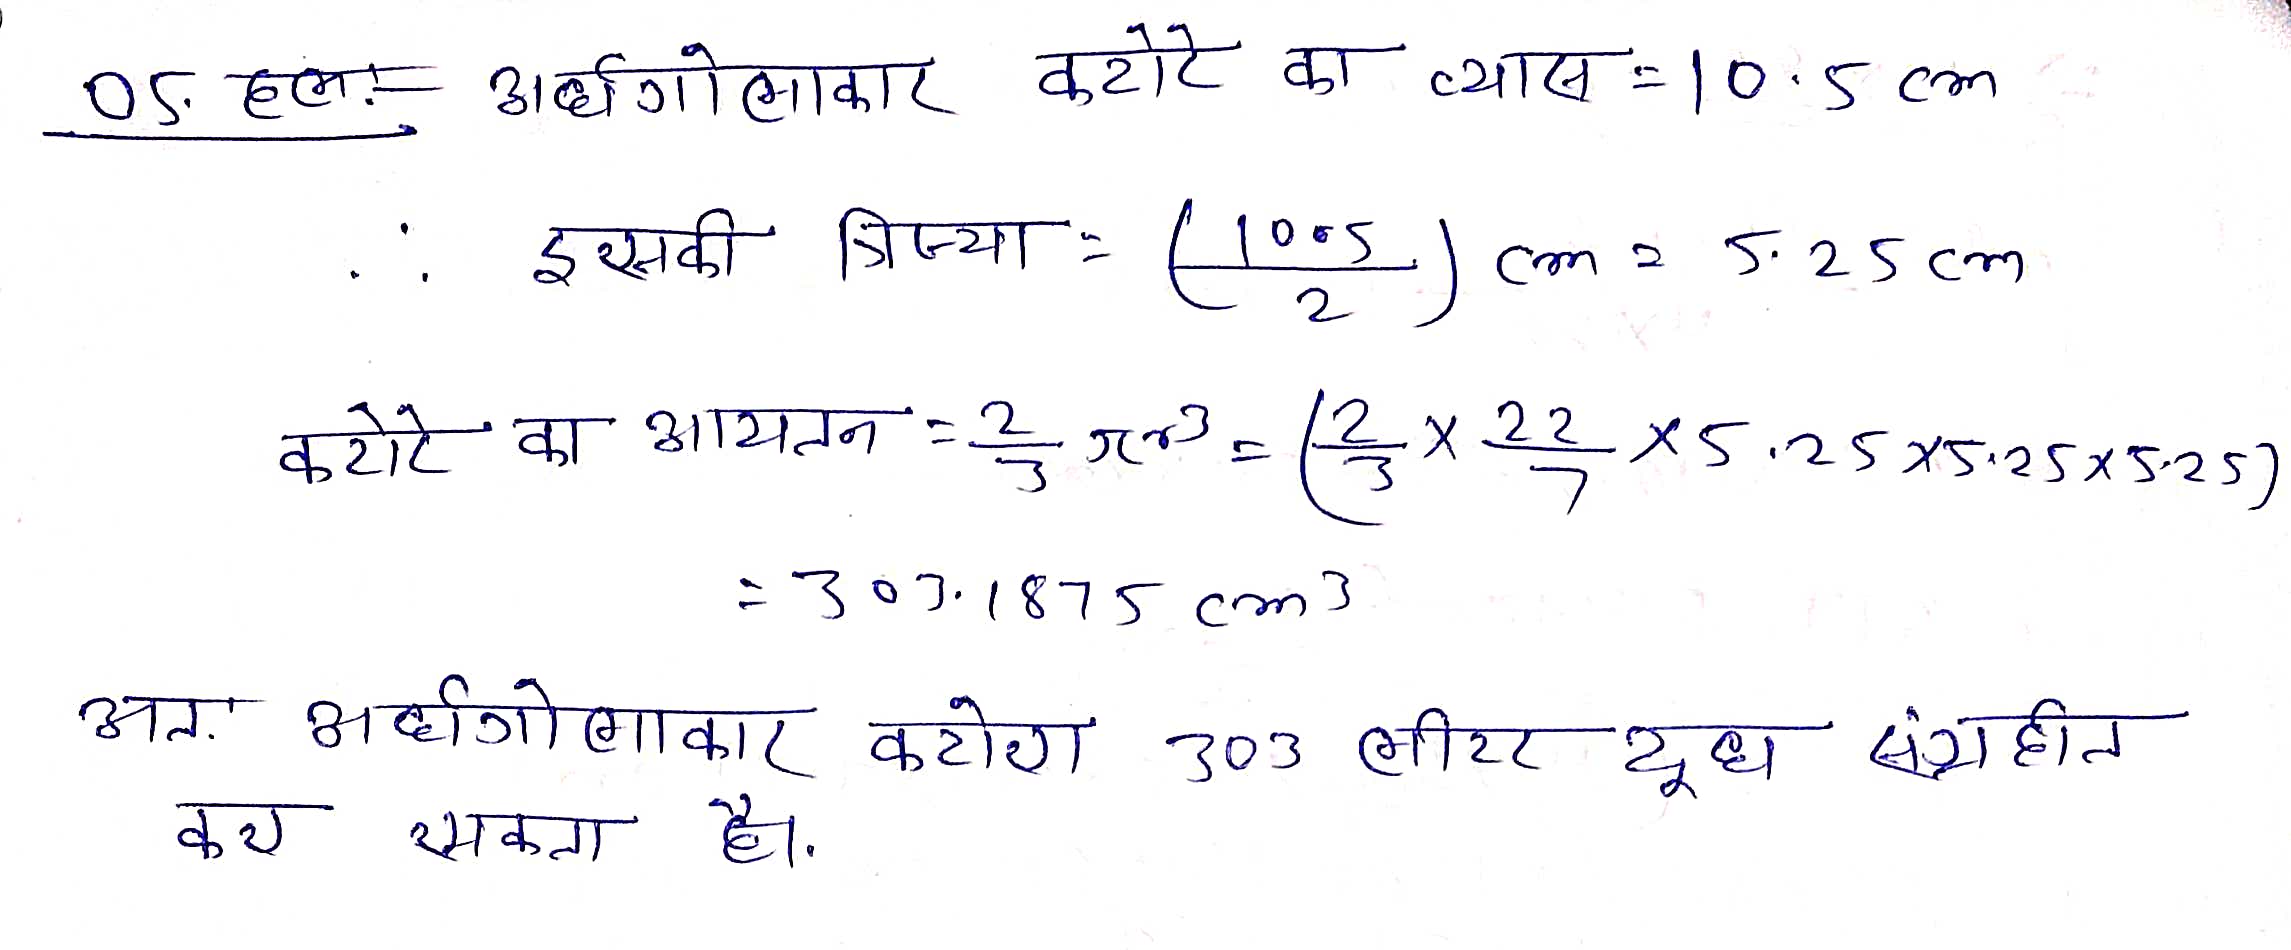 05. हल:- अर्धगोलाकार कटोरे का व्यास = 10.5 cm
∴ इसकी त्रिज्या = (10.5/2) cm = 5.25 cm
कटोरे का आयतन = 2/3 πr³ = (2/3 × 22/7 × 5.25 × 5.25 × 5.25)
= 303.1875 cm³
अतः अर्धगोलाकार कटोरा 303 लीटर दूध संग्रहीत
कर सकता है।.